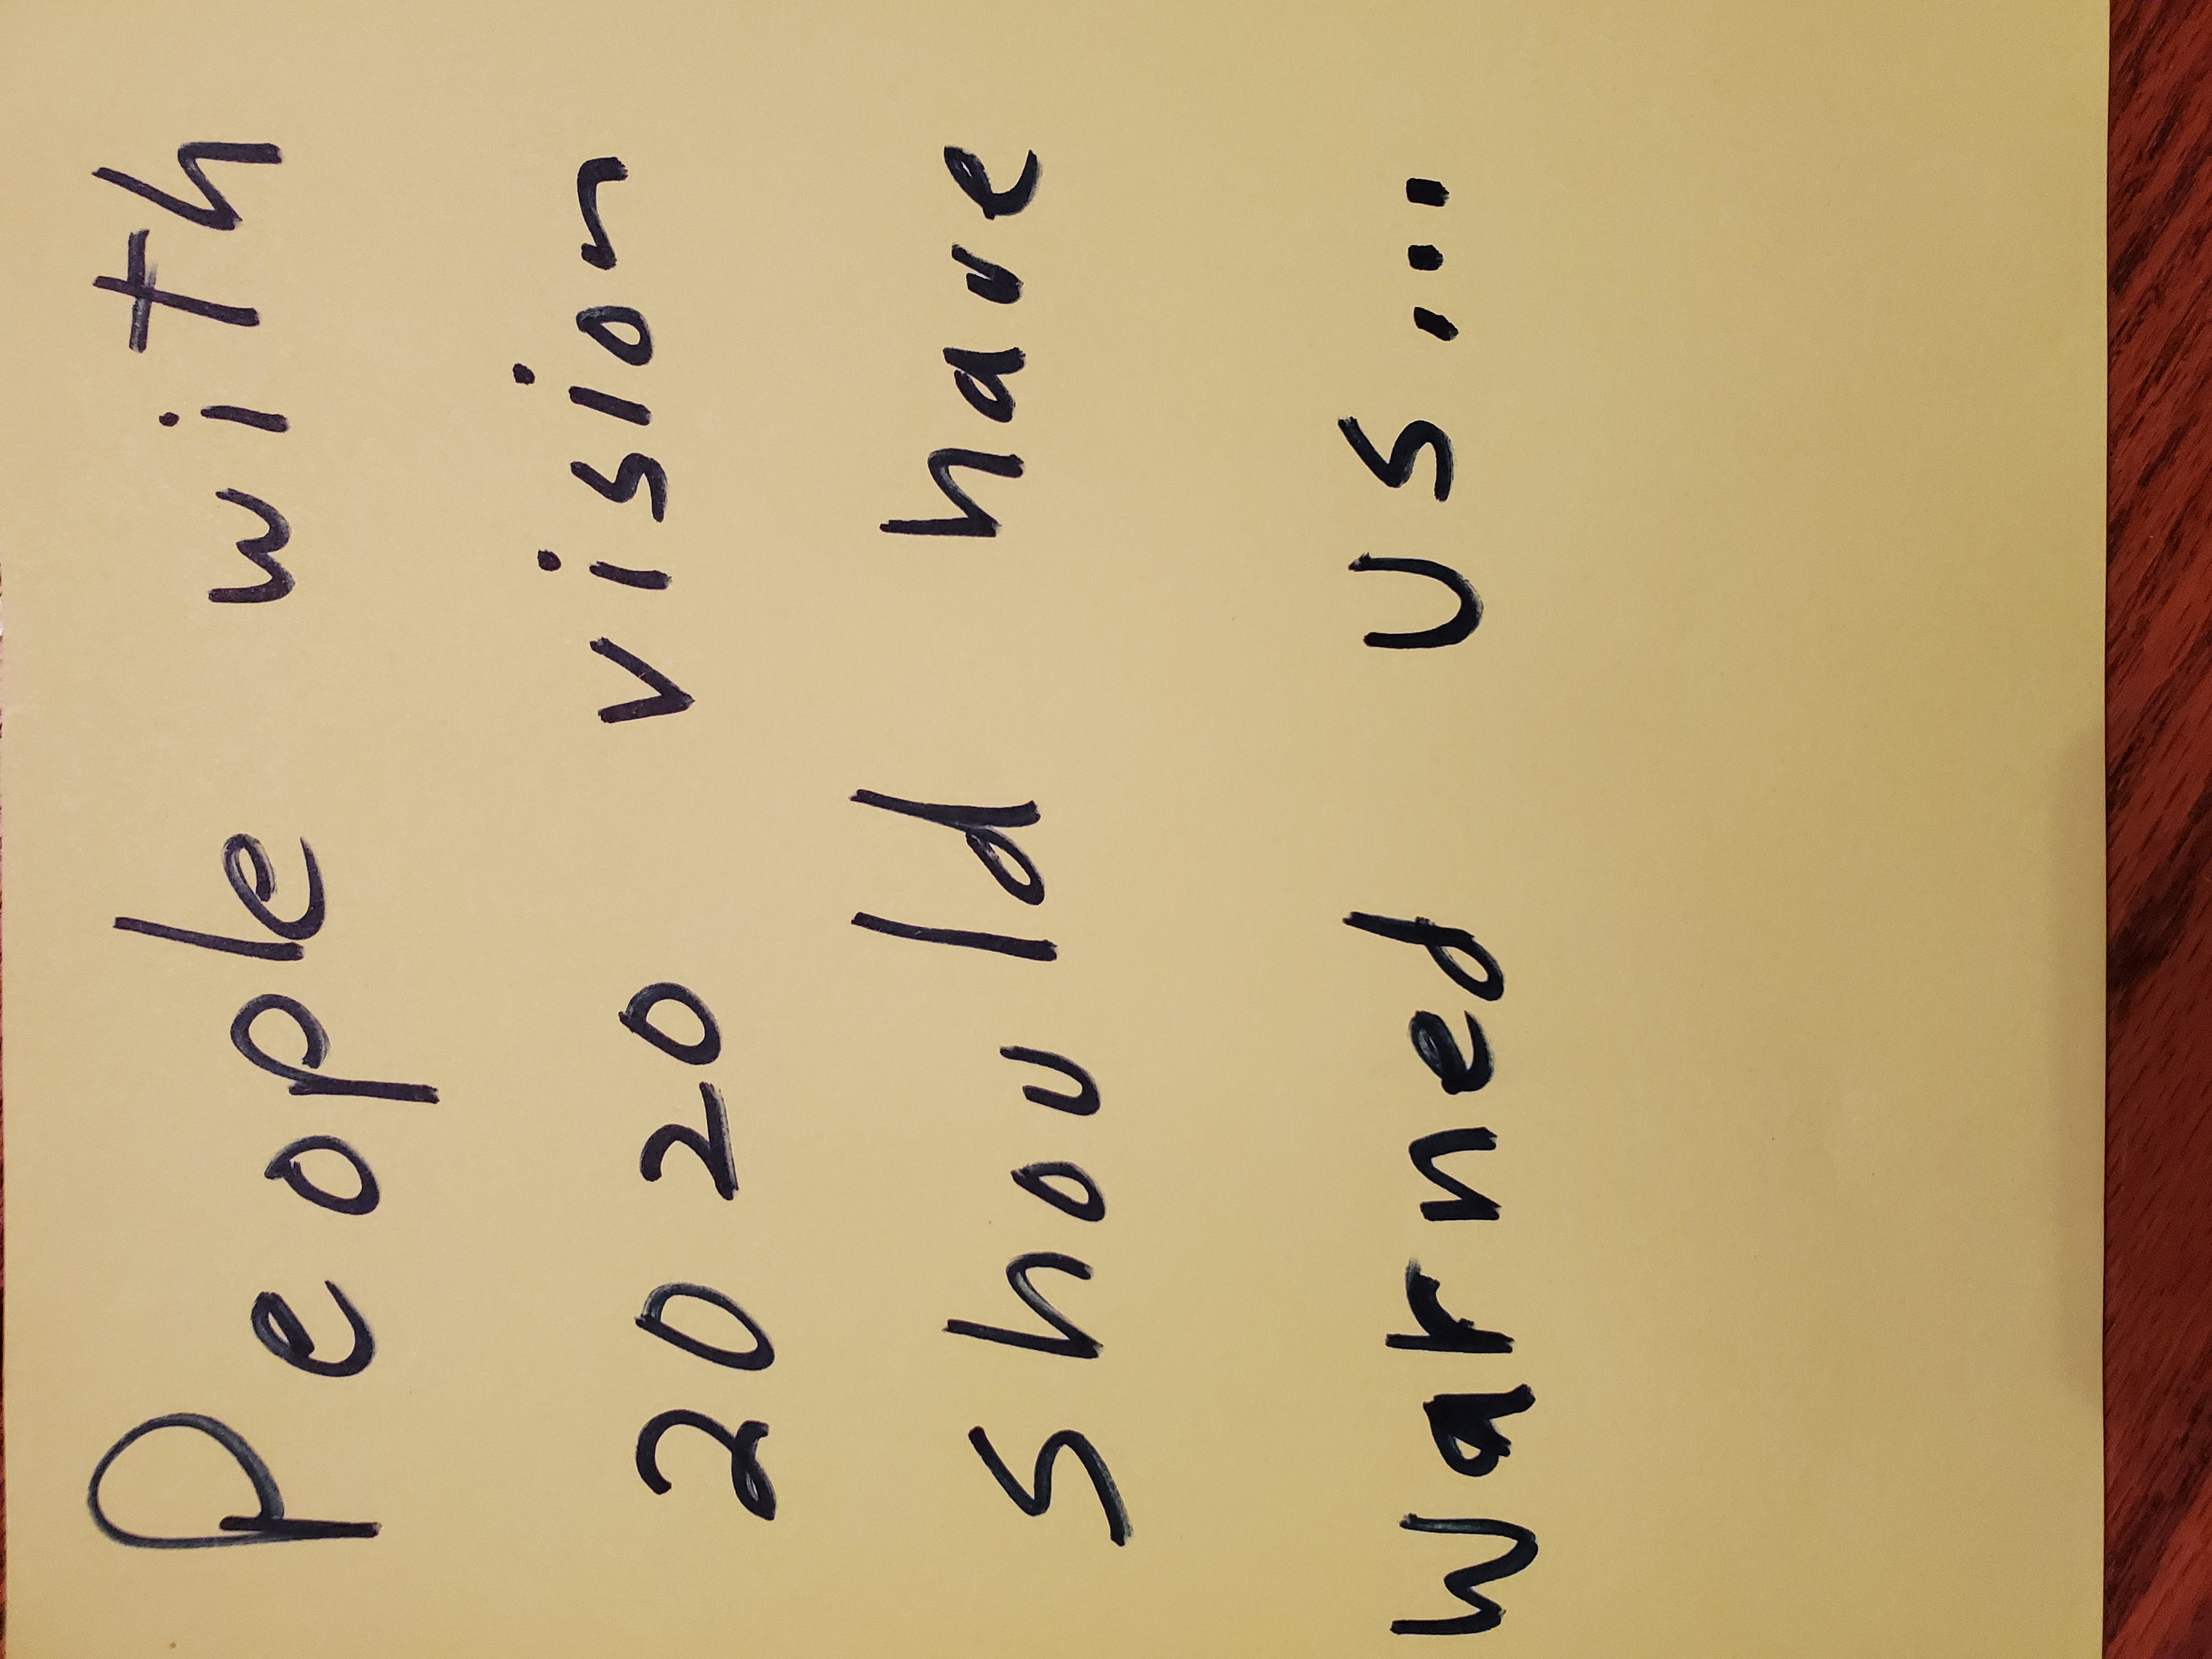 People with
2020 vision
should have
warned us...